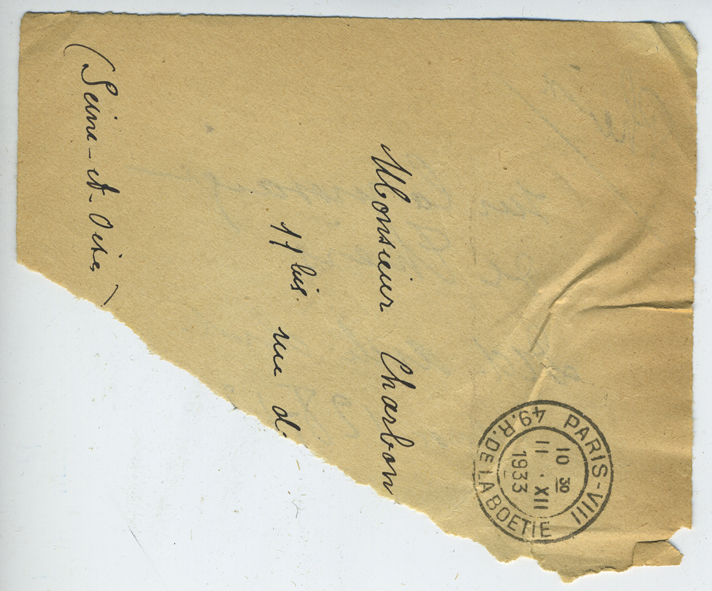 PARIS-VIII
10 30
11 . XII
1933
49.R.DE LA BOETIE
Monsieur Charbon
11 bis rue d
(Seine-et-Oise)